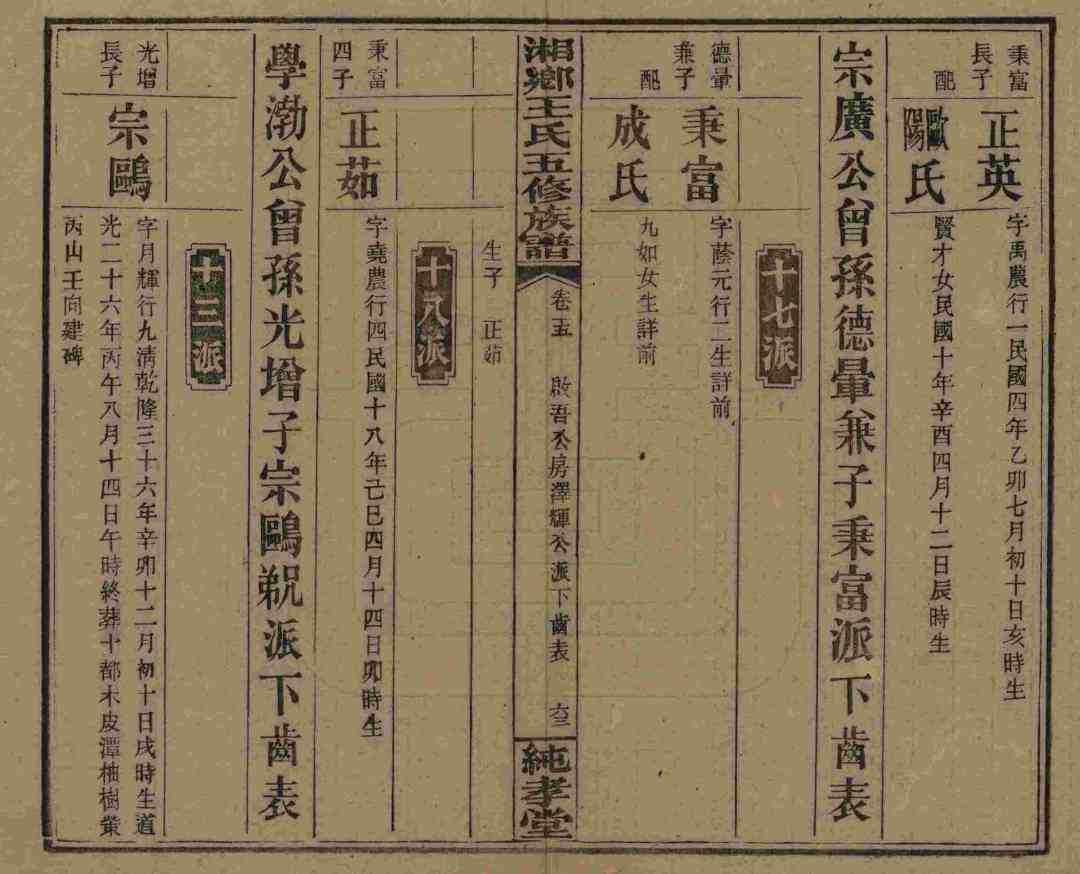 秉富長子
正英
字禹農行一民國四年乙卯七月初十日亥時生
配
歐陽氏
賢才女民國十年辛酉四月十二日辰時生
宗廣公曾孫德暈兼子秉富派下齒表
十七派
德暈兼子
秉富
字蔭元行二生詳前
配
成氏
九如女生詳前
湘鄉王氏五修族譜
卷五
啟吾公房澤輝公派下齒表
六三
純孝堂
生子
正茹
十八派
秉富四子
正茹
字堯農行四民國十八年己巳四月十四日卯時生
學渤公曾孫光增子宗鷗派下齒表
十三派
光增長子
宗鷗
字月輝行九清乾隆三十六年辛卯十二月初十日戌時生道
光二十六年丙午八月十四日午時終葬十都木皮潭柚樹
丙山壬向建碑